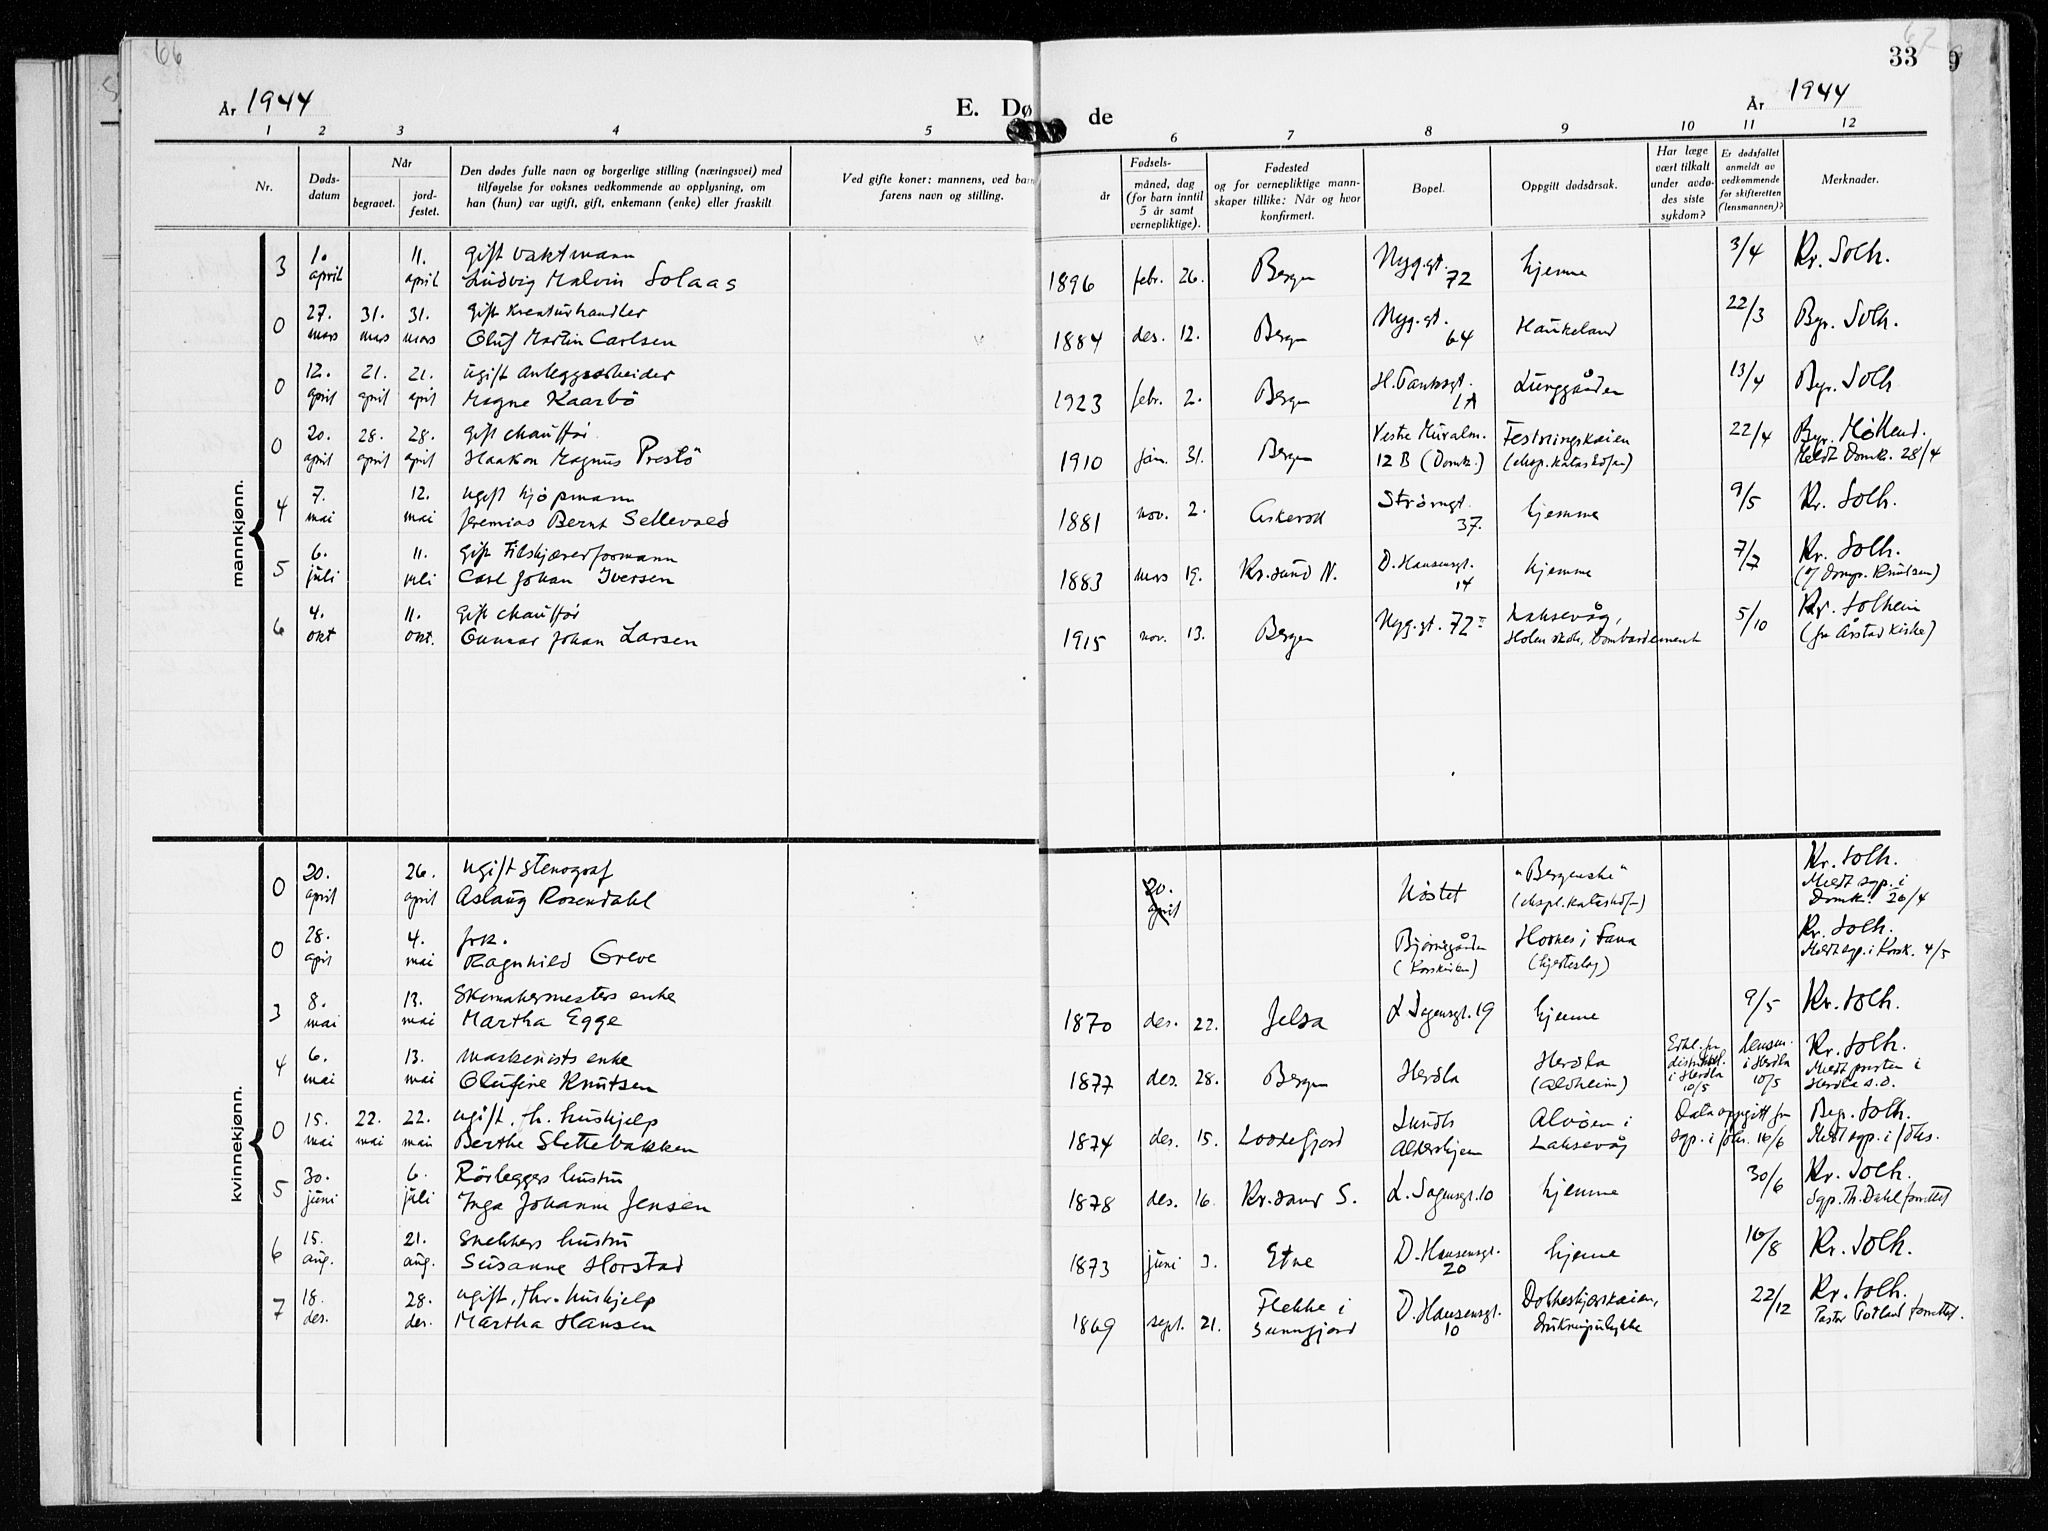 66
67
33
9
År 1944
E. Dø de
År 1944
1 2 3 4 5 6 7 8 9 10 11 12
Nr.
Døds-
datum
Når
begravet.
jord-
festet.
Den dødes fulle navn og borgerlige stilling (næringsvei) med
tilføyelse for voksnes vedkommende av opplysning, om
han (hun) var ugift, gift, enkemann (enke) eller fraskilt
Ved gifte koner: mannens, ved barn
farens navn og stilling.
Fødsels-
år
måned, dag
(for barn inntil
5 år samt
vernepliktige).
Fødested
og for vernepliktige mann-
skaper tillike: Når og hvor
konfirmert.
Bopel.
Oppgitt dødsårsak.
Har læge
vært tilkalt
under avdø-
des siste
sykdom?
Er dødsfallet
anmeldt av
vedkommende
for skifteretten
(lensmannen)?
Merknader.
mannkjønn.
3 1. april 11. april gift vaktmann
Ludvig Malvin Solaas 1896 febr. 26. Bergen Nyg.gt. 72 hjemme 3/4 Kr. Solh.
0 27. mars 31. mars 31. mars gift kreaturhandler
Oluf Martin Carlsen 1884 des. 12. Bergen Nyg.gt. 64 Haukeland 22/3 Byr. Solh.
0 12. april 21. april 21. april ugift anleggsarbeider
Magne Kaarbö 1923 febr. 2. Bergen H. Tanksgt. 1A Lungegården 13/4 Byr. Solh.
0 20. april 28. april 28. april gift chaufför
Haakon Magnus Prestö 1910 jan. 31. Bergen Vestre Muralm.
12 B (Domk.) Festningskaien
(eksp.katastrofen) 22/4 Byr. Møllend.
Meldt Domk. 28/4
4 7. mai 12. mai ugift kjøpmann
Jeremias Bernt Sellevold 1881 nov. 2. Askerød Strømgt. 37. hjemme 9/5 Kr. Solh.
5 6. juli 11. juli gift tilskjærerformann
Carl Johan Iversen 1883 mars 19. Kr.sund N. D. Hansensgt. 14 hjemme 7/7 Kr. Solh.
(v/ Dompr. Knutsen)
6 4. okt 11. okt. gift chaufför
Gunnar Johan Larsen 1915 nov. 13. Bergen Nyg.gt. 72 II Laksevåg,
Holen skole, bombardement 5/10 Kr. Solheim
(fra Årstad kirke)
kvinnekjønn.
0 20. april 26. april ugift stenograf
Aslaug Rosendahl 20. april Nöstet "Bergenske"
(ekspl.katastrofen) Kr. Solh.
Meldt sgp. i
Domk. 26/4
0 28. april 4. mai frk.
Ragnhild Greve Bjørnsgården
(Korskirken) Hornes i Fana
(hjerteslag) Kr. Solh.
Meldt sgp. i Korsk. 4/5
3 8. mai 13. mai Skomakermesters enke
Martha Egge 1870 des. 22. Jelsa L. Sagensgt. 19 hjemme 9/5 Kr. Solh.
4 6. mai 13. mai maskinists enke
Olufine Knutsen 1877 des. 28. Bergen Herdla Herdla
(aldheim) Erkl. fra
distriktsl.
i Herdla
10/5 lensm.
i Herdla
10/5 Kr. Solh.
Meldt presten i
Herdla s.d.
0 15. mai 22. mai 22. mai ugift, fh. hushjelp
Berthe Slettebakken 1874 des. 15. Loddefjord Sundts
Aldershjem Alvöen i
Laksevåg Data oppgitt fra
sgp. i Johs. 16/6 Byr. Solh.
Meldt sgp. i Johs.
5 30. juni 6. juli Rörleggers hustru
Inga Johanne Jensen 1878 des. 16. Kr.sand S. L. Sagensgt. 10 hjemme 30/6 Kr. Solh.
Sgp. Th. Dahl forrettet
6 15. aug. 21. aug. Snekkers hustru
Susanne Horstad 1873 juni 3. Etne D. Hansensgt. 20 hjemme 16/8 Kr. Solh.
7 18. des. 28. des. ugift, fhv. hushjelp
Martha Hansen 1869 sept. 21. Flekke i
Sunnfjord D. Hansensgt. 10 Dokkeskjærskaien,
drukningsulykke 22/12 Kr. Solh.
Pastor Totland forrettet.